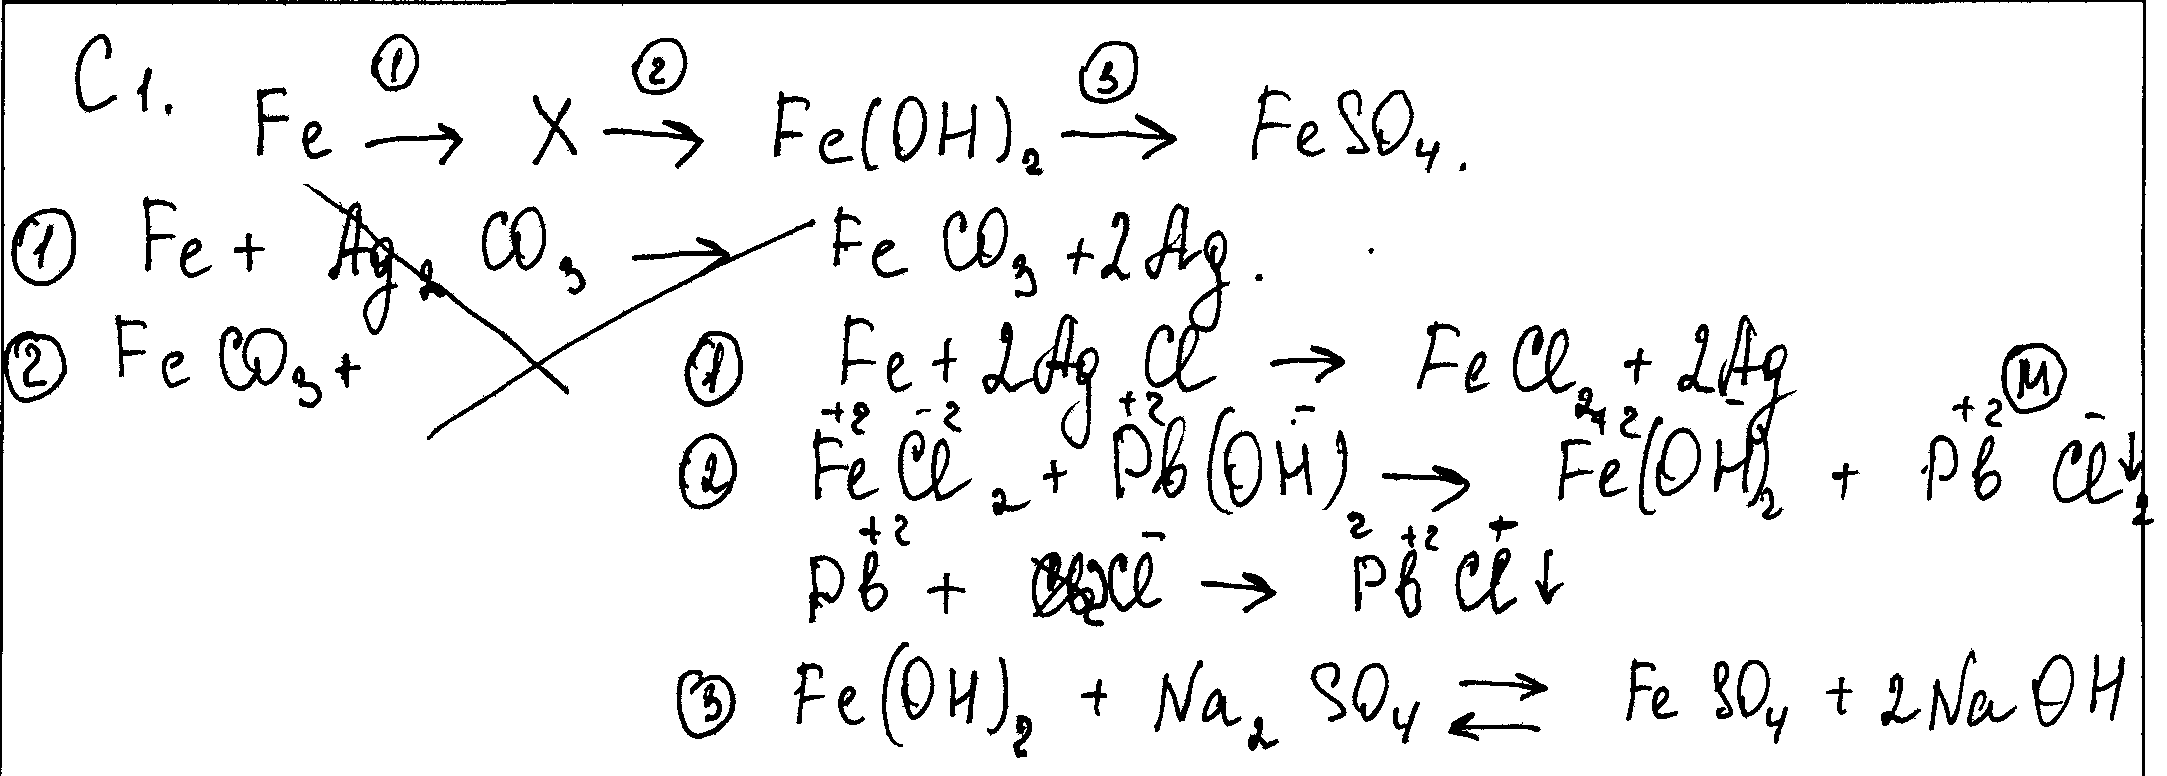 C1. Fe ①→ X ②→ Fe(OH)₂ ③→ FeSO₄.
① Fe + Ag₂CO₃ → FeCO₃ + 2Ag.
② FeCO₃ +
① Fe + 2AgCl → FeCl₂ + 2Ag
② Fe⁺²Cl⁻²₂ + Pb⁺²(OH⁻)₂ → Fe⁺²(OH⁻)₂ + Pb⁺²Cl⁻₂↓ Ⓜ
Pb⁺² + Cl⁻ → Pb⁺²Cl⁺↓
③ Fe(OH)₂ + Na₂SO₄ ⇄ FeSO₄ + 2NaOH